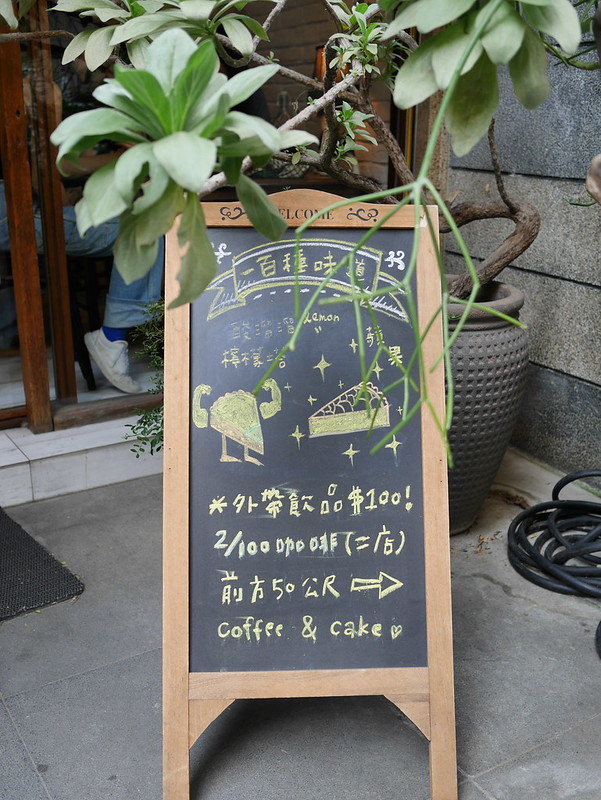 WELCOME
一百種味道
酸溜溜 Lemon
檸檬塔
蘋果
*外帶飲品$100!
2/100 咖啡(二店)
前方50公尺 ⇨
coffee & cake ♡